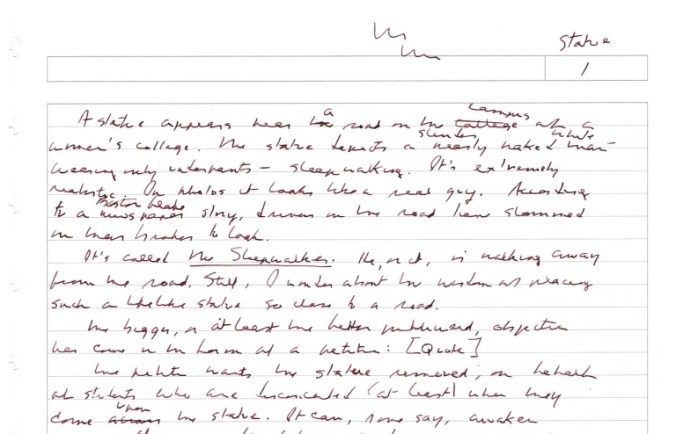 Statue
1
A statue appears near the a road on the college campus of a
women's college. The statue depicts a nearly naked slender white man
wearing only underpants – sleepwalking. It's extremely
realistic. In photos it looks like a real guy. According
to a Boston Globe newspaper story, drivers on the road have slammed
on their brakes to look.
It's called The Sleepwalker. He, or it, is walking away
from the road. Still, I wonder about the wisdom of placing
such a lifelike statue so close to a road.
The bigger, or at least the better publicized, objection
has come in the form of a petition: [Quote]
The petition wants the statue removed, on behalf
of students who are (at least) when they
come across upon the statue. It can, some say, awaken